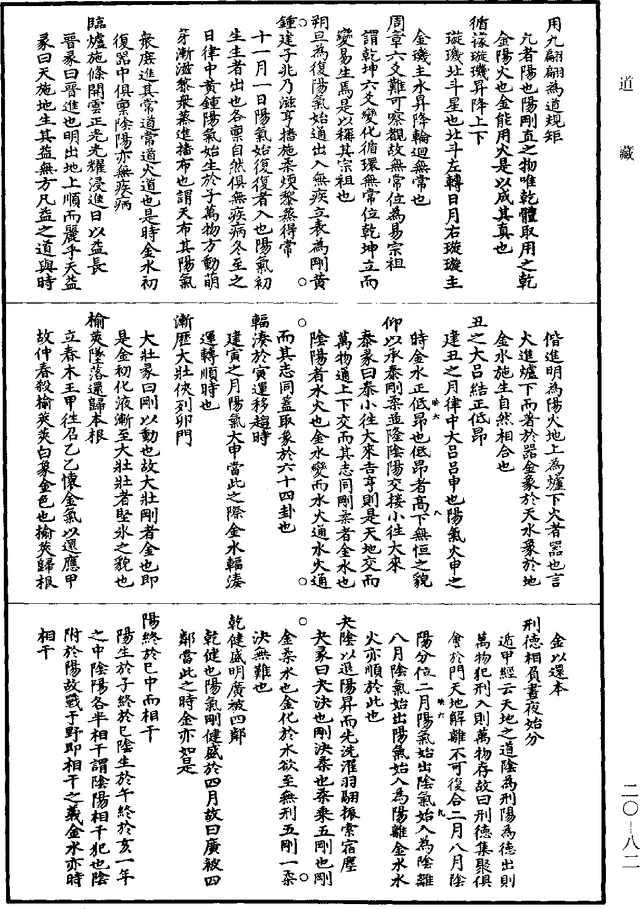 道藏
用九翩翩為道規矩
九者陽也陽剛直之物唯乾體取用之乾
金陽火也金能用火是以成其真也
循據璇璣昇降上下
璇璣北斗星也北斗左轉日月右璇璇主
金璣主水昇降輪迴無常也
周章六爻難可察觀故無常位為易宗祖
謂乾坤六爻變化循環無常位乾坤立而
變易生焉是以稱其宗祖也
朔旦為復陽氣始通出入無疾立表為剛黃
鍾建子兆乃滋亨播施柔煗黎蒸得常
十一月一日陽氣始復復者入也陽氣初
生生者出也各稟自然俱無疾病冬至之
日律中黃鍾陽氣始生於子萬物方動萌
牙漸滋黎衆蒸進播布也謂天布其陽氣
衆庶進其常道常道火道也是時金水初
復器中俱稟陰陽亦無疾病
臨爐施條開雲正光光耀浸進日以益長
晉彖曰晉進也明出地上順而麗乎天益
彖曰天施地生其益無方凡益之道與時
偕進明為陽火地上為爐下火者器也言
火進爐下而著於器金象於天水象於地
金水施生自然相合也
丑之大吕結正低昂
建丑之月律中大吕吕申也陽氣火申之
時金水正低昂也低昂者高下無恒之貌
仰以承泰剛柔並隆陰陽交接小往大來
泰彖曰泰小往大來吉亨則是天地交而
萬物通上下交而其志同剛柔者金水也
陰陽者水火也金水變而水火通水火通
而其志同蓋取象於六十四卦也
輻湊於寅運移趨時
建寅之月陽氣大申當此之際金水輻湊
運轉順時也
漸歷大壯俠列卯門
大壯彖曰剛以動也故大壯剛者金也即
是金初化液漸至大壯壯者堅氷之貌也
榆莢墜落還歸本根
立春木王甲往召乙乙懷金氣以還應甲
故仲春殺榆莢莢白象金色也榆莢歸根
金以還本
刑德相負晝夜始分
遁甲經云天地之道陰為刑陽為德出則
萬物犯刑入則萬物存故曰刑德集聚俱
會於門天地解離不可復合二月八月陰
陽分位二月陽氣始出陰氣始入為陰離
八月陰氣始出陽氣始入為陽離金水水
火亦順於此也
夬陰以退陽昇而先洗濯羽翮振索宿塵
夬彖曰夬決也剛決柔也柔乘五剛也剛
金柔水也金化於水欲至無刑五剛一柔
決無難也
乾健盛明廣被四鄰
乾健也陽氣剛健盛於四月故曰廣被四
鄰當此之時金亦如是
陽終於巳中而相干
陽生於子終於巳陰生於午終於亥一年
之中陰陽各半相干謂陰陽相干犯也陰
附於陽故戰于野即相干之義金水亦時
相干
二〇—八二